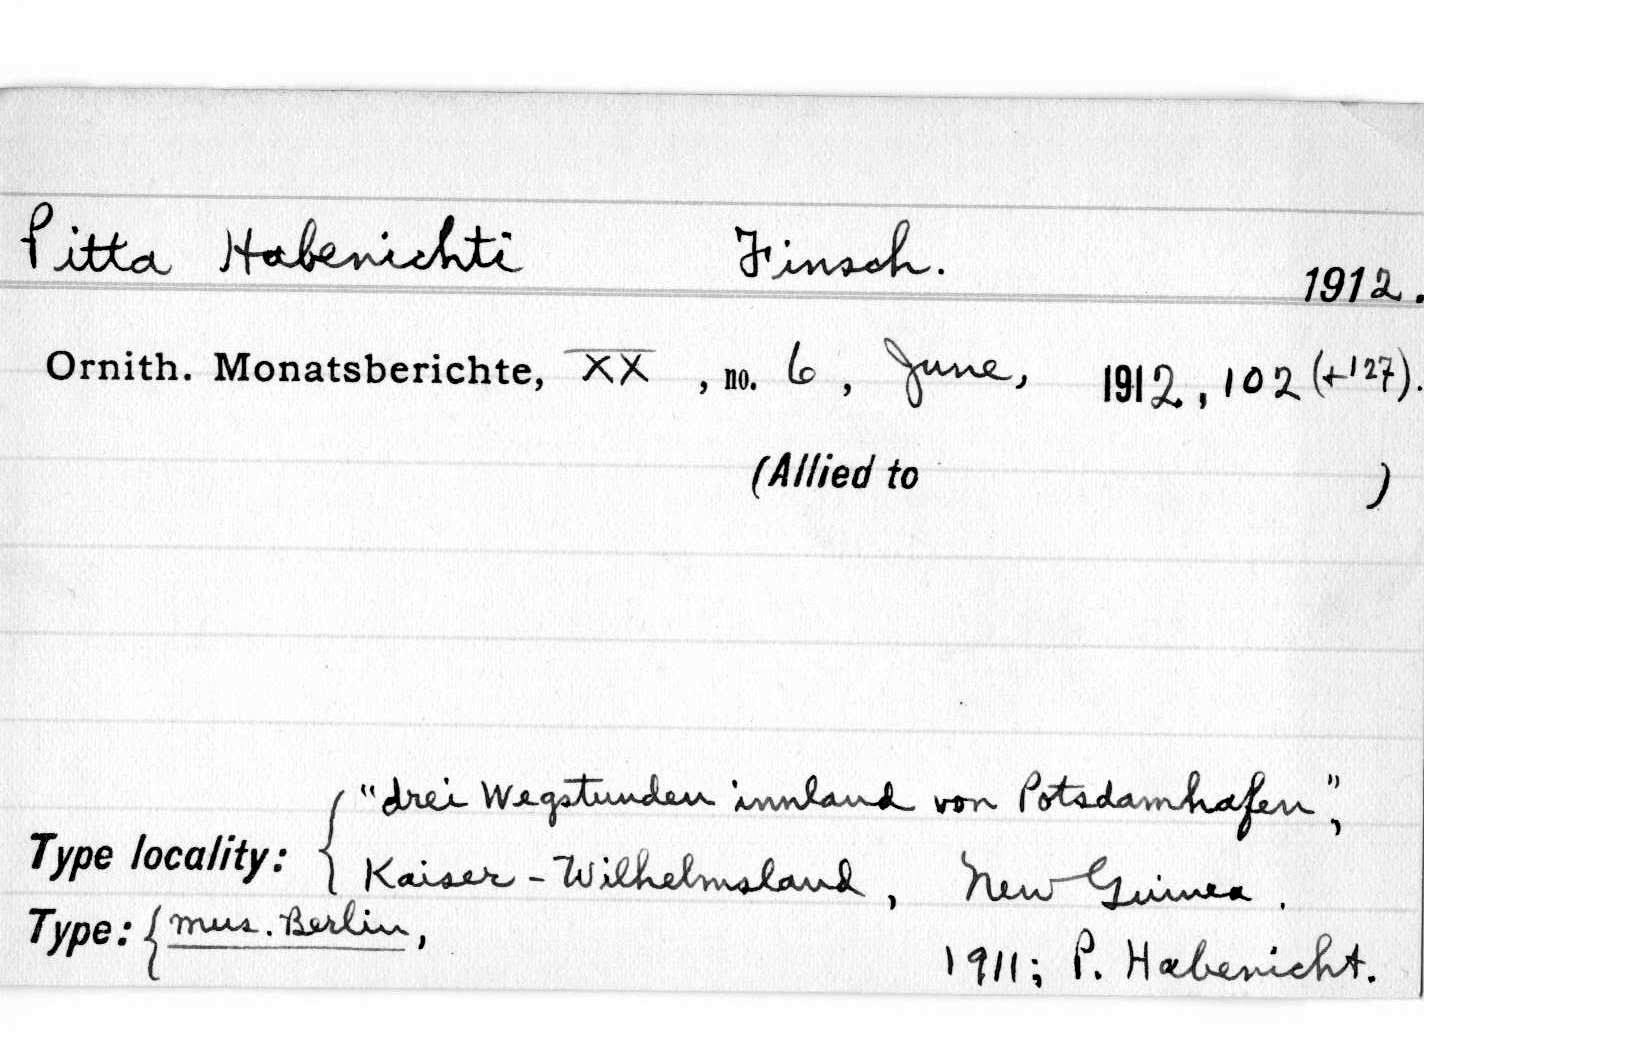 Pitta Habenichti Finsch. 1912.
Ornith. Monatsberichte, XX, no. 6, June, 1912, 102 (+127).
(Allied to )
"drei Wegstunden innland von Potsdamhafen",
Type locality: { Kaiser-Wilhelmsland, New Guinea.
Type: { Mus. Berlin,
1911; P. Habenicht.